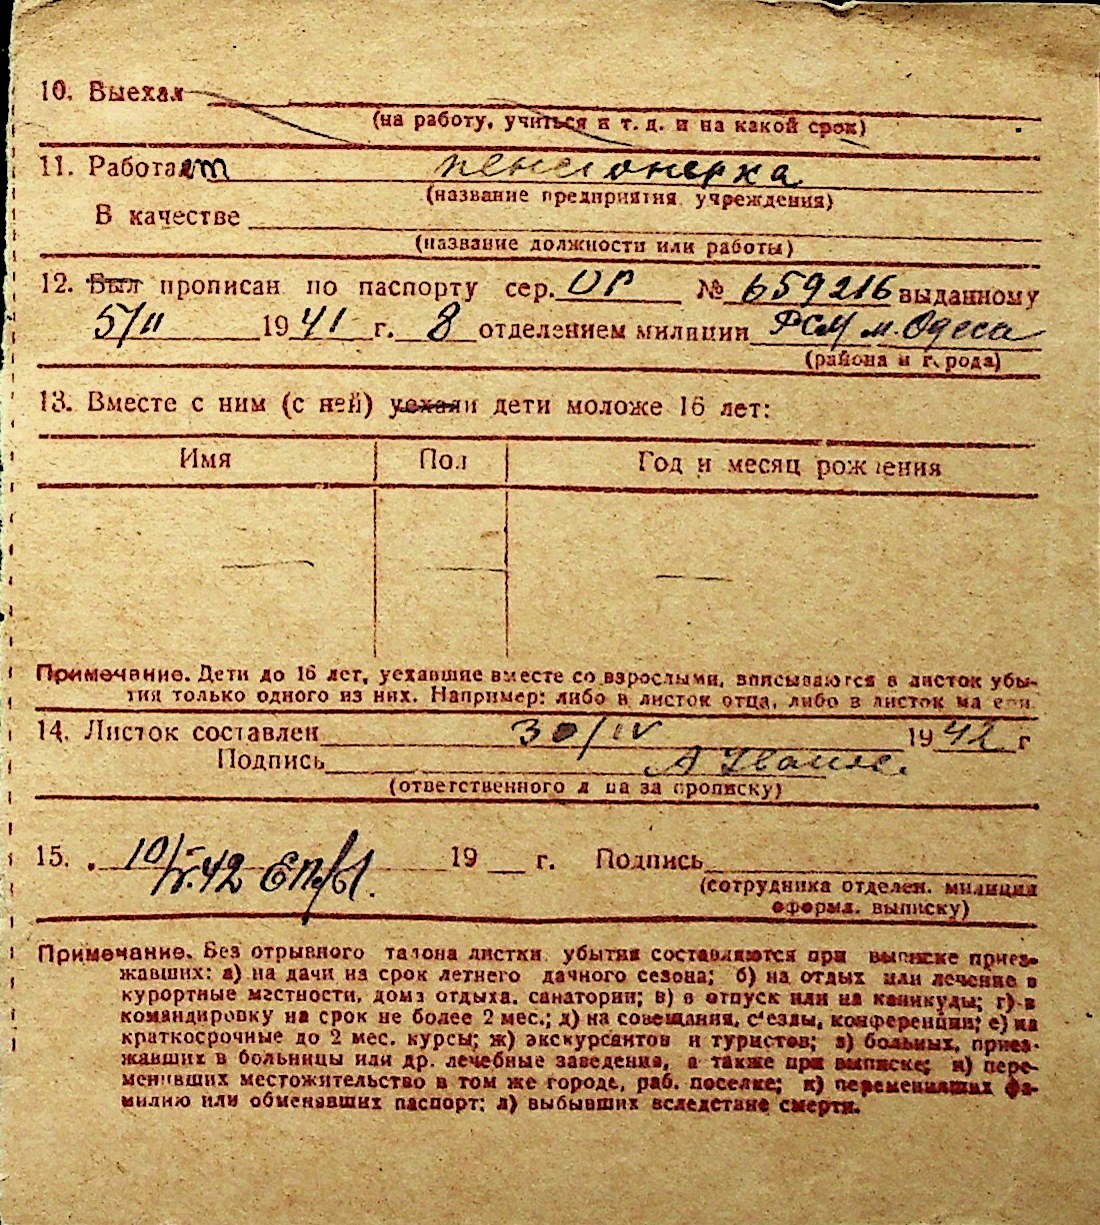 10. Выехал
(на работу, учиться и т. д. и на какой срок)
11. Работает пенсионерка
(название предприятия учреждения)
В качестве
(название должности или работы)
12. Был прописан по паспорту сер. UР № 659216 выданному
5/II 1941 г. 8 отделением милиции РСМ м. Одеса
(района и города)
13. Вместе с ним (с ней) уехали дети моложе 16 лет:
Имя Пол Год и месяц рождения
Примечание. Дети до 16 лет, уехавшие вместе со взрослыми, вписываются в листок убы-
тия только одного из них. Например: либо в листок отца, либо в листок матери.
14. Листок составлен 30/IV 1942 г
Подпись
(ответственного лица за прописку)
15. 10/V.42 19 г. Подпись
(сотрудника отделен. милиции
оформл. выписку)
Примечание. Без отрывного талона листки убытия составляются при выписке приез-
жавших: а) на дачи на срок летнего дачного сезона; б) на отдых или лечение в
курортные местности, дома отдыха, санатории; в) в отпуск или на каникулы; г) в
командировку на срок не более 2 мес.; д) на совещания, съезды, конференции; е) на
краткосрочные до 2 мес. курсы; ж) экскурсантов и туристов; з) больных, приез-
жавших в больницы или др. лечебные заведения, а также при выписке; и) пере-
менивших местожительство в том же городе, раб. поселке; к) переменивших фа-
милию или обменявших паспорт; л) выбывших вследствие смерти.